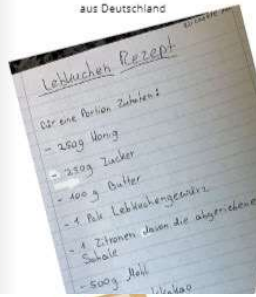 aus Deutschland
Lebkuchen Rezept
Für eine Portion Zutaten:
- 250g Honig
- 250g Zucker
- 100 g Butter
- 1 Pck Lebkuchengewürz
- 1 Zitronen davon die abgeriebene
Schale
- 500g Mehl